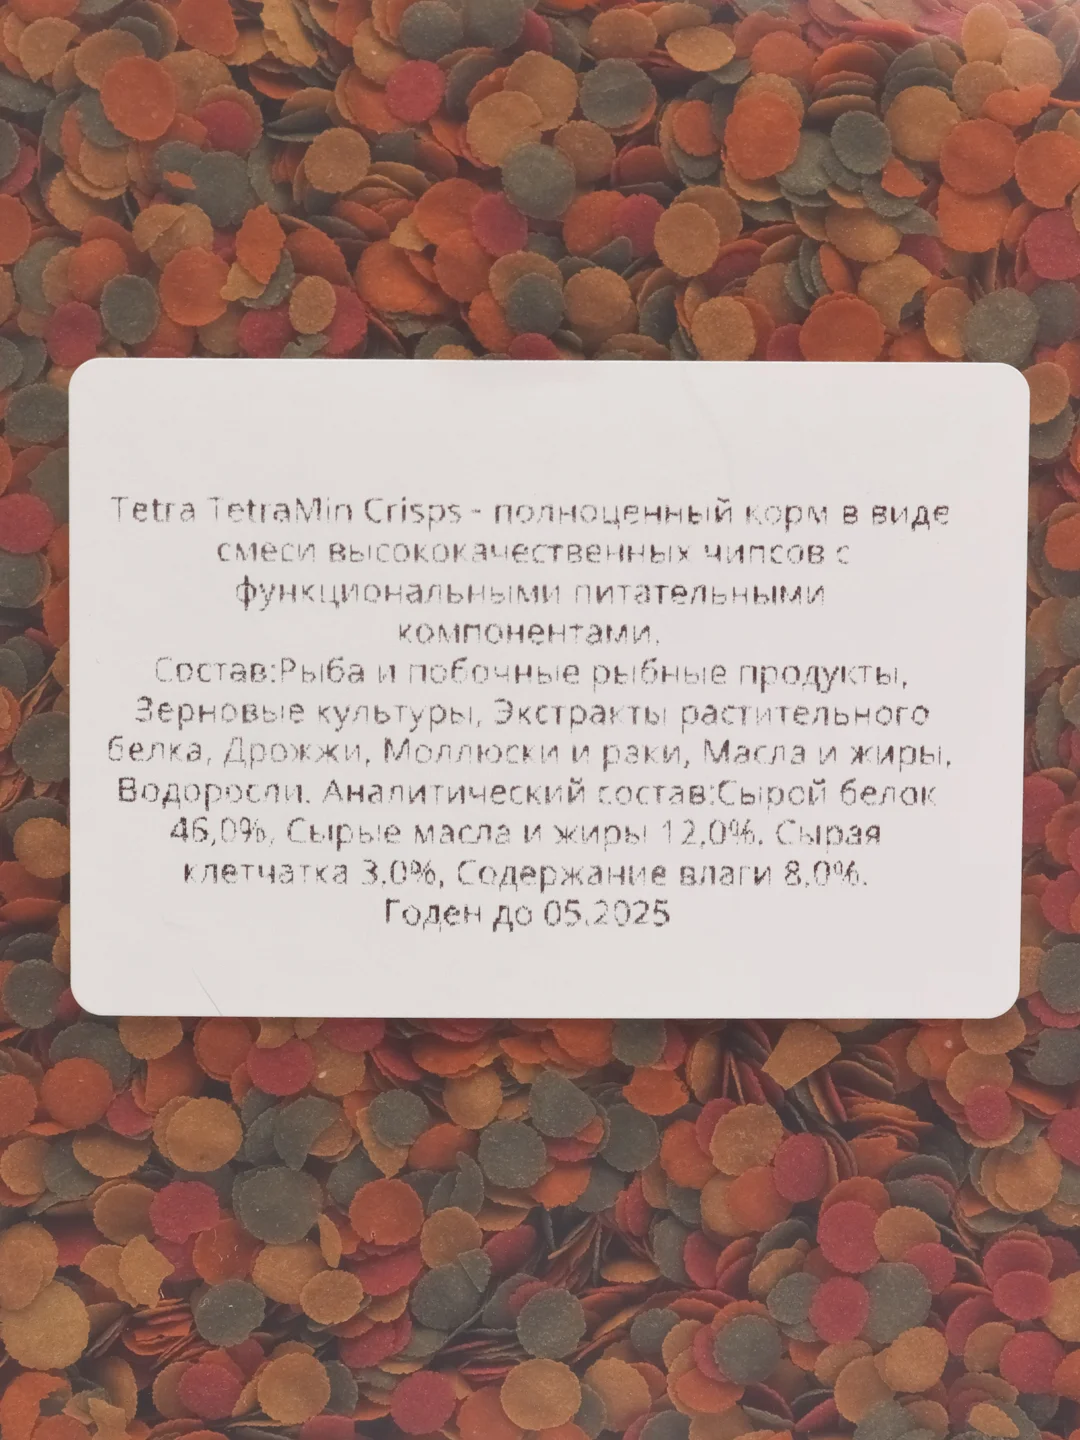 Tetra TetraMin Crisps - полноценный корм в виде
смеси высококачественных чипсов с
функциональными питательными
компонентами.
Состав:Рыба и побочные рыбные продукты,
Зерновые культуры, Экстракты растительного
белка, Дрожжи, Моллюски и раки, Масла и жиры,
Водоросли. Аналитический состав:Сырой белок
46,0%, Сырые масла и жиры 12,0%. Сырая
клетчатка 3,0%, Содержание влаги 8,0%.
Годен до 05.2025